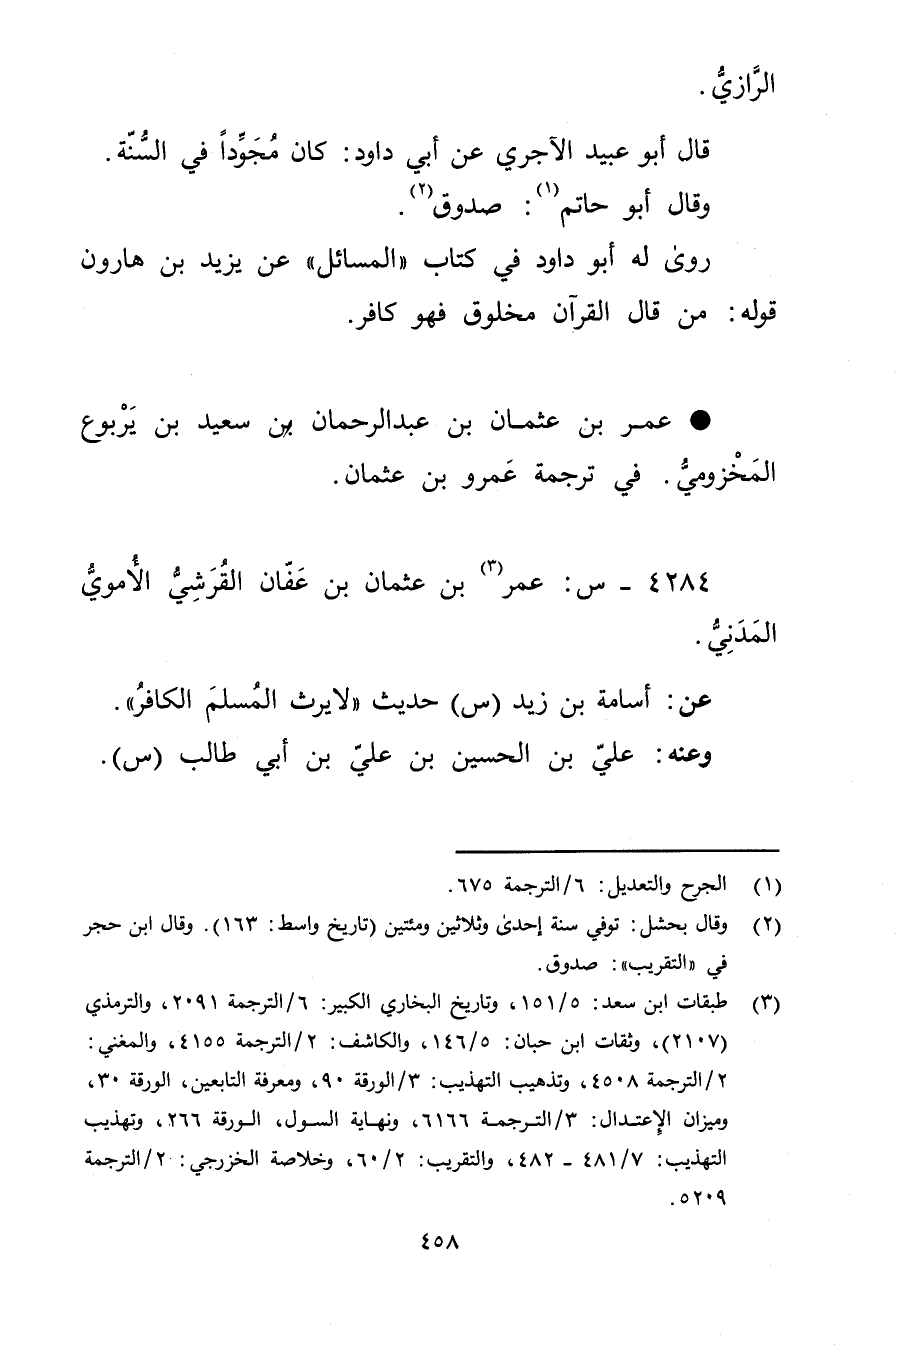 الرَّازيُّ .
قال أبو عبيد الآجري عن أبي داود: كان مُجَوِّداً في السُّنّة .
وقال أبو حاتم(١): صدوق(٢).
روىٰ له أبو داود في كتاب «المسائل» عن يزيد بن هارون
قوله: من قال القرآن مخلوق فهو كافر.
● عمـر بن عثمـان بن عبدالرحمان بن سعيد بن يَرْبوع
المَخْزوميُّ. في ترجمة عَمرو بن عثمان.
٤٢٨٤ ـ س: عمر(٣) بن عثمان بن عَفّان القُرَشِيُّ الأُمويُّ
المَدَنِيُّ.
عن: أسامة بن زيد (س) حديث «لايرث المُسلمَ الكافرُ».
وعنه: عليّ بن الحسين بن عليّ بن أبي طالب (س).
(١) الجرح والتعديل: ٦/الترجمة ٦٧٥.
(٢) وقال بحشل: توفي سنة إحدىٰ وثلاثين ومئتين (تاريخ واسط: ١٦٣). وقال ابن حجر
في «التقريب»: صدوق.
(٣) طبقات ابن سعد: ١٥١/٥، وتاريخ البخاري الكبير: ٦/الترجمة ٢٠٩١، والترمذي
(٢١٠٧)، وثقات ابن حبان: ١٤٦/٥، والكاشف: ٢/الترجمة ٤١٥٥، والمغني:
٢/الترجمة ٤٥٠٨، وتذهيب التهذيب: ٣/الورقة ٩٠، ومعرفة التابعين، الورقة ٣٠،
وميزان الإعتـدال: ٣/التـرجمـة ٦١٦٦، ونهـاية السـول، الـورقة ٢٦٦، وتهذيب
التهذيب: ٤٨١/٧ ـ ٤٨٢، والتقريب: ٦٠/٢، وخلاصة الخزرجي: ٢/الترجمة
٥٢٠٩.
٤٥٨